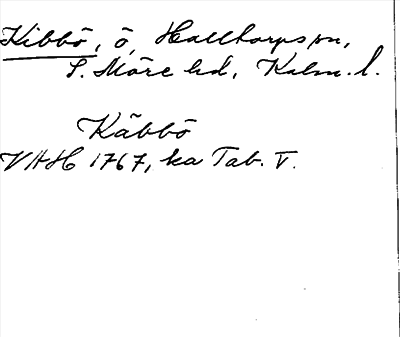 Kibbö, ö, Halltorps sn,
S. Möre hd, Kalm. l.
Käbbö
VAH 1767, ka Tab. V.